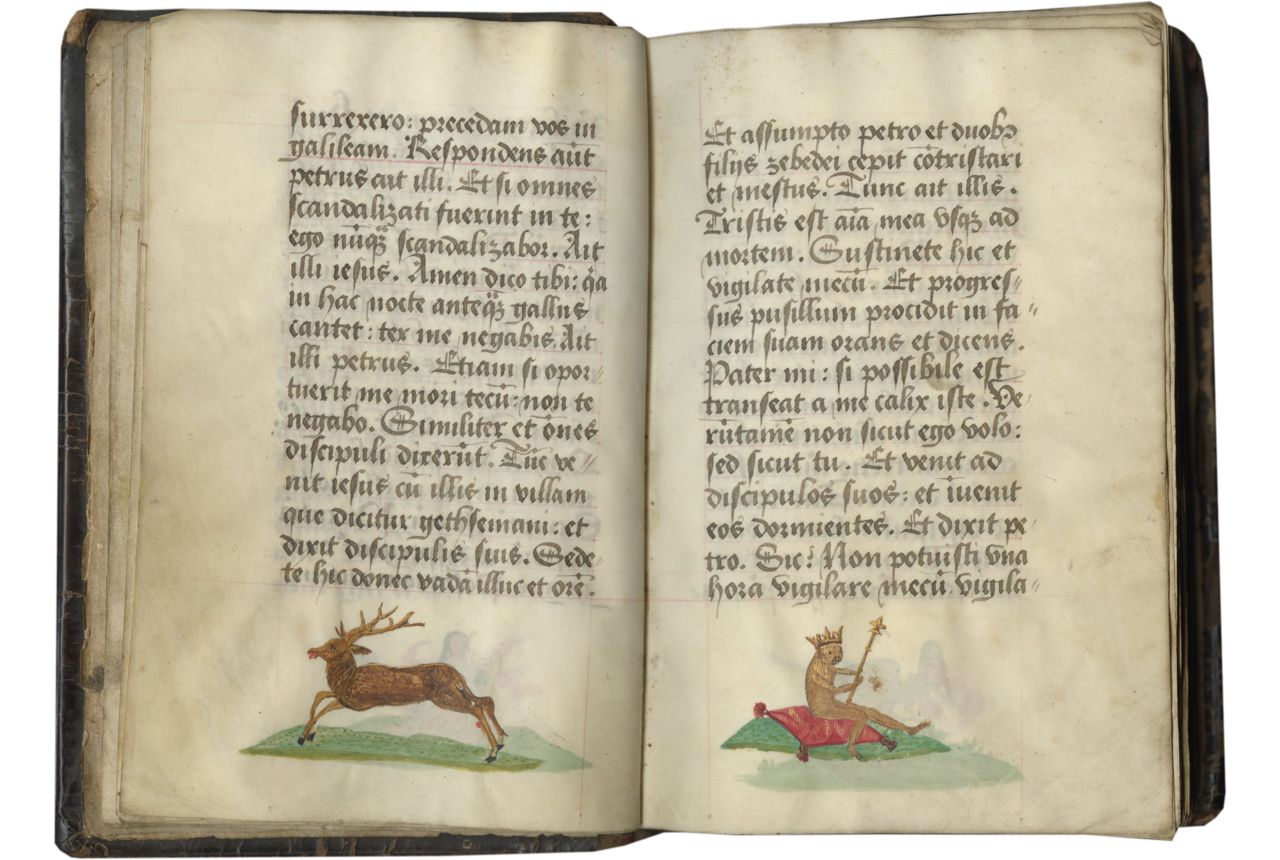 surrexero: precedam vos in
galileam. Respondens aūt
petrus ait illi. Et si omnes
scandalizati fuerint in te:
ego nūqꝫ scandalizabor. Ait
illi iesus. Amen dico tibi: qͣa
in hac nocte anteqꝫ gallus
cantet: ter me negabis. Ait
illi petrus. Etiam si opor⸗
tuerit me mori tecū: non te
negabo. Similiter et ōnes
discipuli dixerūt. Tūc ve⸗
nit iesus cū illis in villam
que dicitur gethsemani: et
dixit discipulis suis. Sede⸗
te hic donec vadā illuc et orē.
Et assumpto petro et duobꝫ
filijs zebedei cepit cōtristari
et mestus. Tunc ait illis.
Tristis est aīa mea vsqꝫ ad
mortem. Sustinete hic et
vigilate mecū. Et progres⸗
sus pusillum procidit in fa⸗
ciem suam orans et dicens.
Pater mi: si possibile est
transeat a me calix iste. Ve⸗
rūtamē non sicut ego volo:
sed sicut tu. Et venit ad
discipulos suos: et īuenit
eos dormientes. Et dixit pe⸗
tro. Sic? Non potuisti vna
hora vigilare mecū vigila⸗